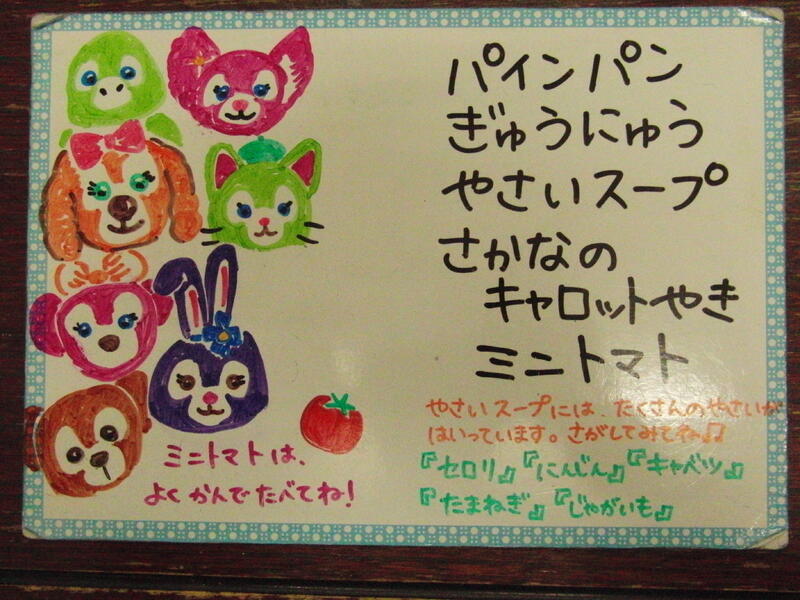 パインパン
ぎゅうにゅう
やさいスープ
さかなの
キャロットやき
ミニトマト
やさいスープには、たくさんのやさいが
はいっています。さがしてみてね♫
『セロリ』『にんじん』『キャベツ』
『たまねぎ』『じゃがいも』
ミニトマトは、
よくかんでたべてね!